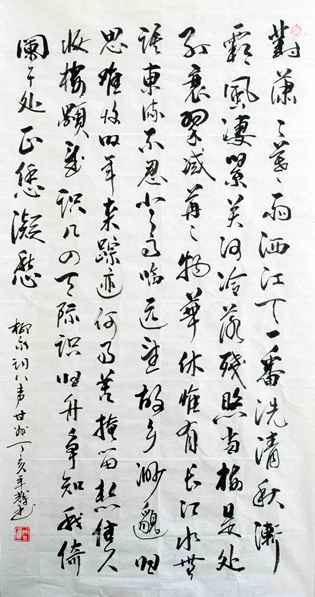 對瀟々暮雨洒江天一番洗清秋漸
霜風凄緊关河冷落殘照当楼是处
红衰翠減苒々物華休惟有长江水無
語東流不忍登高临远望故乡渺邈归
思难收叹年来踪迹何事苦淹留想佳人
妆楼颙望误几回天际识归舟争知我倚
阑干处正恁凝愁
柳永词八声甘州丁亥年